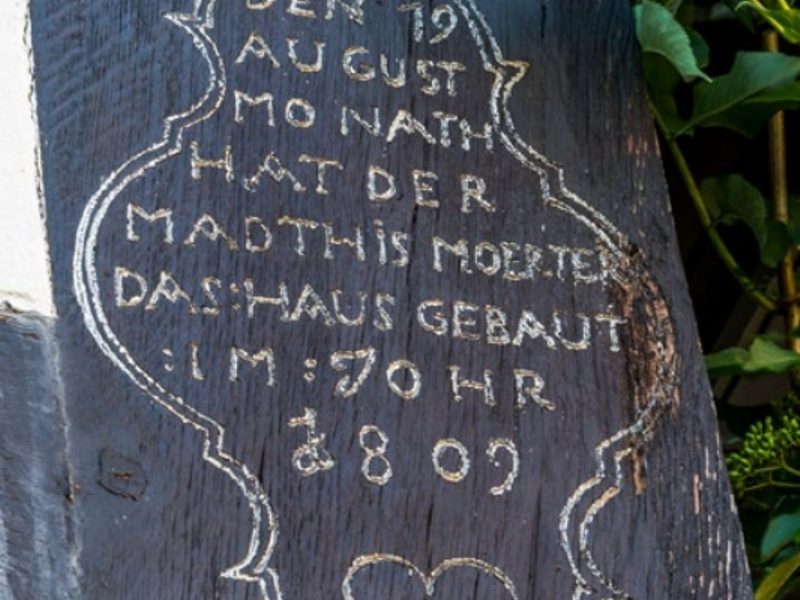 DEN 19
AUGUST
MONATH
HAT DER
MADTHiS MOERTER
DAS:HAUS GEBAUT
:IM:JOHR
1809